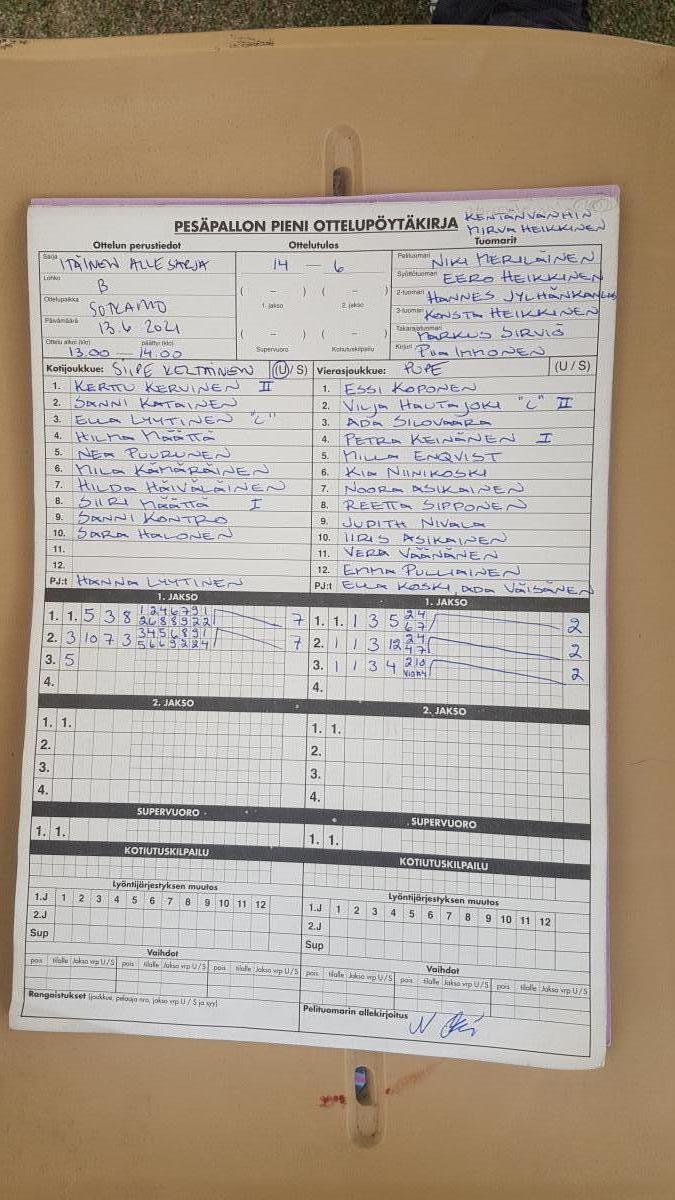 PESÄPALLON PIENI OTTELUPÖYTÄKIRJA
KENTÄNVANHIN
MIRVA HEIKKINEN
Ottelun perustiedot
Sarja ITÄINEN ALLESARJA
Lohko B
Ottelupaikka SOTKAMO
Päivämäärä 13.6 2021
Ottelu alkoi (klo) päättyi (klo)
13.00 — 14.00
Ottelutulos
14 — 6
( – ) ( – )
1. jakso 2. jakso
( – ) ( – )
Supervuoro Kotiutuskilpailu
Tuomarit
Pelituomari NIKI MERILÄINEN
Syöttötuomari EERO HEIKKINEN
2-tuomari HANNES JYLHÄNKANGAS
3-tuomari KONSTA HEIKKINEN
Takarajatuomari MARKUS SIRVIÖ
Kirjuri PIIA IMMONEN
Kotijoukkue: SIIPE KELTAINEN (U / S)
1. KERTTU KERVINEN II
2. SANNI KATAINEN
3. ELLA LYYTINEN "C"
4. HILMA MÄÄTTÄ
5. NEA PUURUNEN
6. MILA KÄMÄRÄINEN
7. HILDA HÄIVÄLÄINEN
8. SIIRI MÄÄTTÄ I
9. SANNI KONTRO
10. SARA HALONEN
11.
12.
PJ:t HANNA LYYTINEN
Vierasjoukkue: PUPE (U / S)
1. ESSI KOPONEN
2. VILJA HAUTAJOKI "C" II
3. ADA SILOVAARA
4. PETRA KEINÄNEN I
5. MILLA ENQVIST
6. KIA NIINIKOSKI
7. NOORA ASIKAINEN
8. REETTA SIPPONEN
9. JUDITH NIVALA
10. IIRIS ASIKAINEN
11. VERA VÄÄNÄNEN
12. EMMA PULLIAINEN
PJ:t ELLA KOSKI, ADA VÄISÄNEN
1. JAKSO
1. 1. 5 3 8 1 2 4 6 7 9 1 7
2 6 8 8 9 2 2
2. 3 10 7 3 3 4 5 6 8 9 1 7
5 6 6 9 2 2 4
3. 5
4.
1. JAKSO
1. 1. 1 3 5 2 4 2
6 7
2. 1 1 3 12 2 4 2
4 7
3. 1 1 3 4 2 10 2
4.
2. JAKSO
1. 1.
2.
3.
4.
2. JAKSO
1. 1.
2.
3.
4.
SUPERVUORO
1. 1.
SUPERVUORO
1. 1.
KOTIUTUSKILPAILU
KOTIUTUSKILPAILU
Lyöntijärjestyksen muutos
1.J 1 2 3 4 5 6 7 8 9 10 11 12
2.J
Sup
Lyöntijärjestyksen muutos
1.J 1 2 3 4 5 6 7 8 9 10 11 12
2.J
Sup
Vaihdot
pois tilalle Jakso vrp U / S pois tilalle Jakso vrp U / S pois tilalle Jakso vrp U / S
Vaihdot
pois tilalle Jakso vrp U / S pois tilalle Jakso vrp U / S pois tilalle Jakso vrp U / S
Rangaistukset (joukkue, pelaaja nro, jakso vrp U / S ja syy)
Pelituomarin allekirjoitus